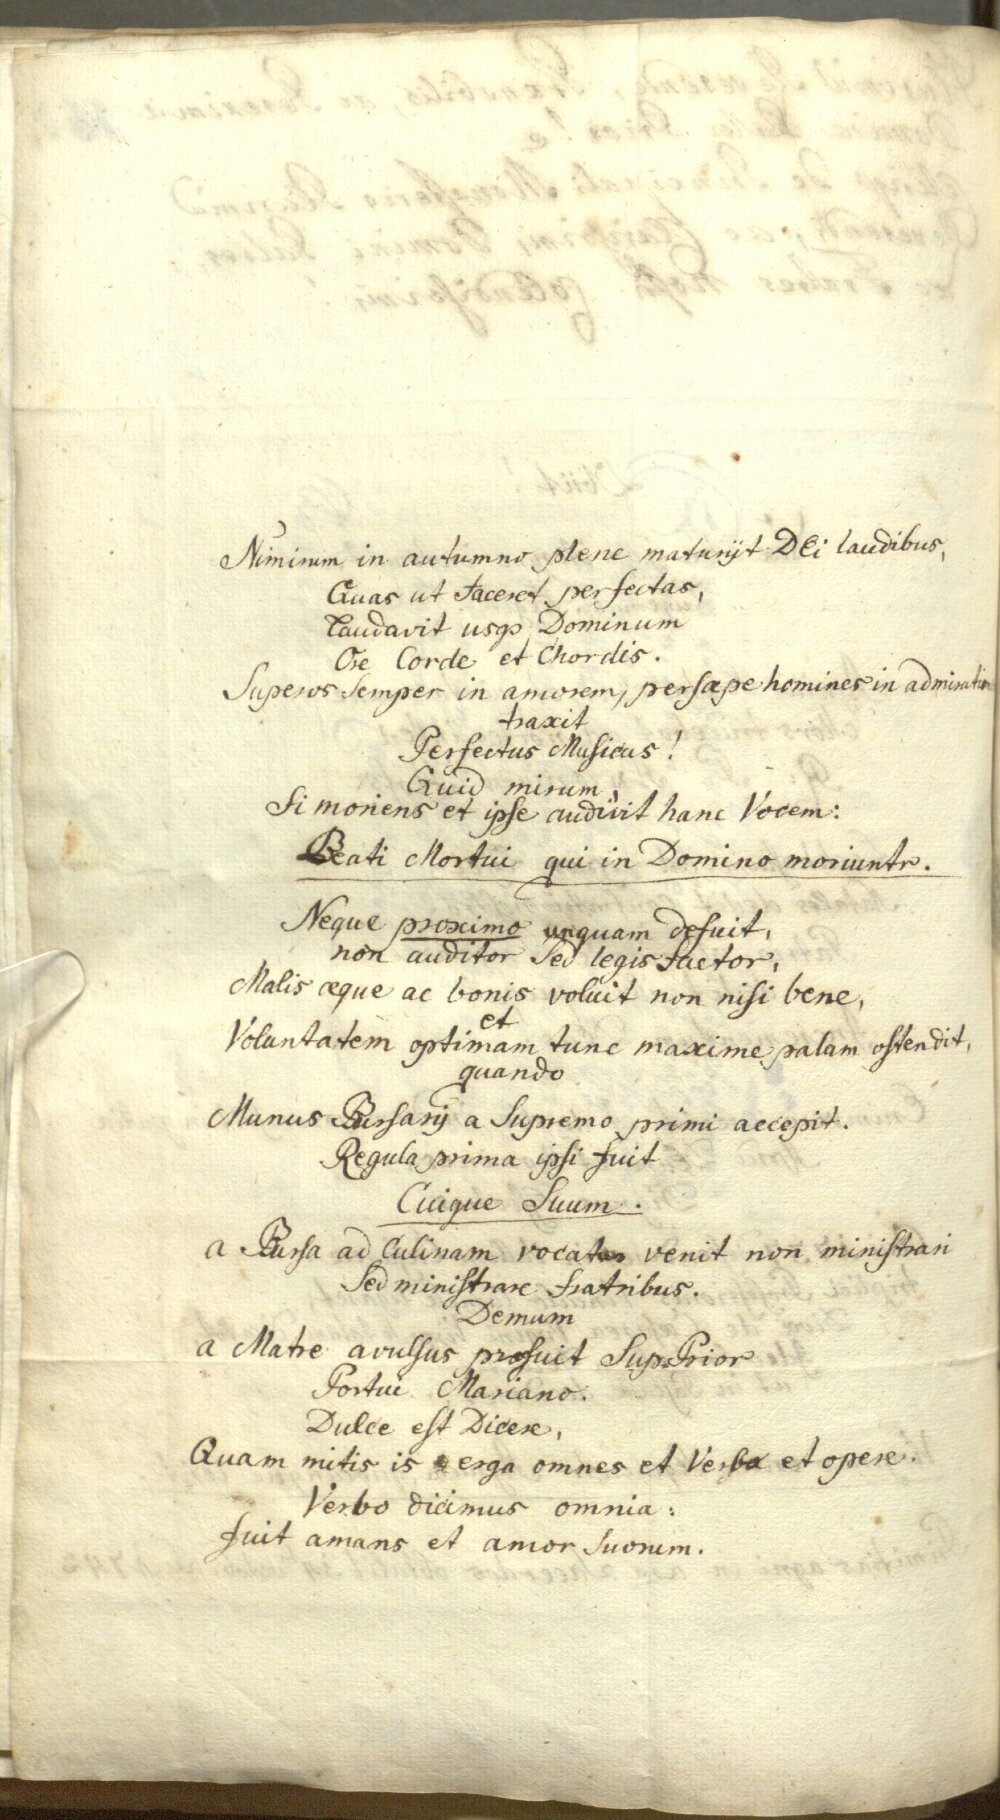 Nimirum in autumno plene maturijt DEi laudibus,
Quas ut faceret perfectas,
Laudavit usq Dominum
Ore Corde et Chordis.
Superos semper in amorem, persæpe homines in admiration
traxit
Perfectus Musicus!
Quid mirum,
si moriens et ipse audivit hanc Vocem:
Beati Mortui qui in Domino moriuntr.
Neque proximo unquam defuit,
non auditor sed legis factor,
Malis æque ac bonis voluit non nisi bene,
et
Voluntatem optimam tunc maxime palam ostendit,
quando
Munus Bursarij a Supremo primi accepit.
Regula prima ipsi fuit
Cuique Suum.
a Bursa ad Culinam vocatus venit non ministrari
sed ministrare fratribus.
Demum
a Matre avulsus profuit SupPrior
Portui Mariano.
Dulce est Dicere,
Quam mitis is erga omnes et Verbo et opere.
Verbo dicimus omnia:
fuit amans et amor suorum.